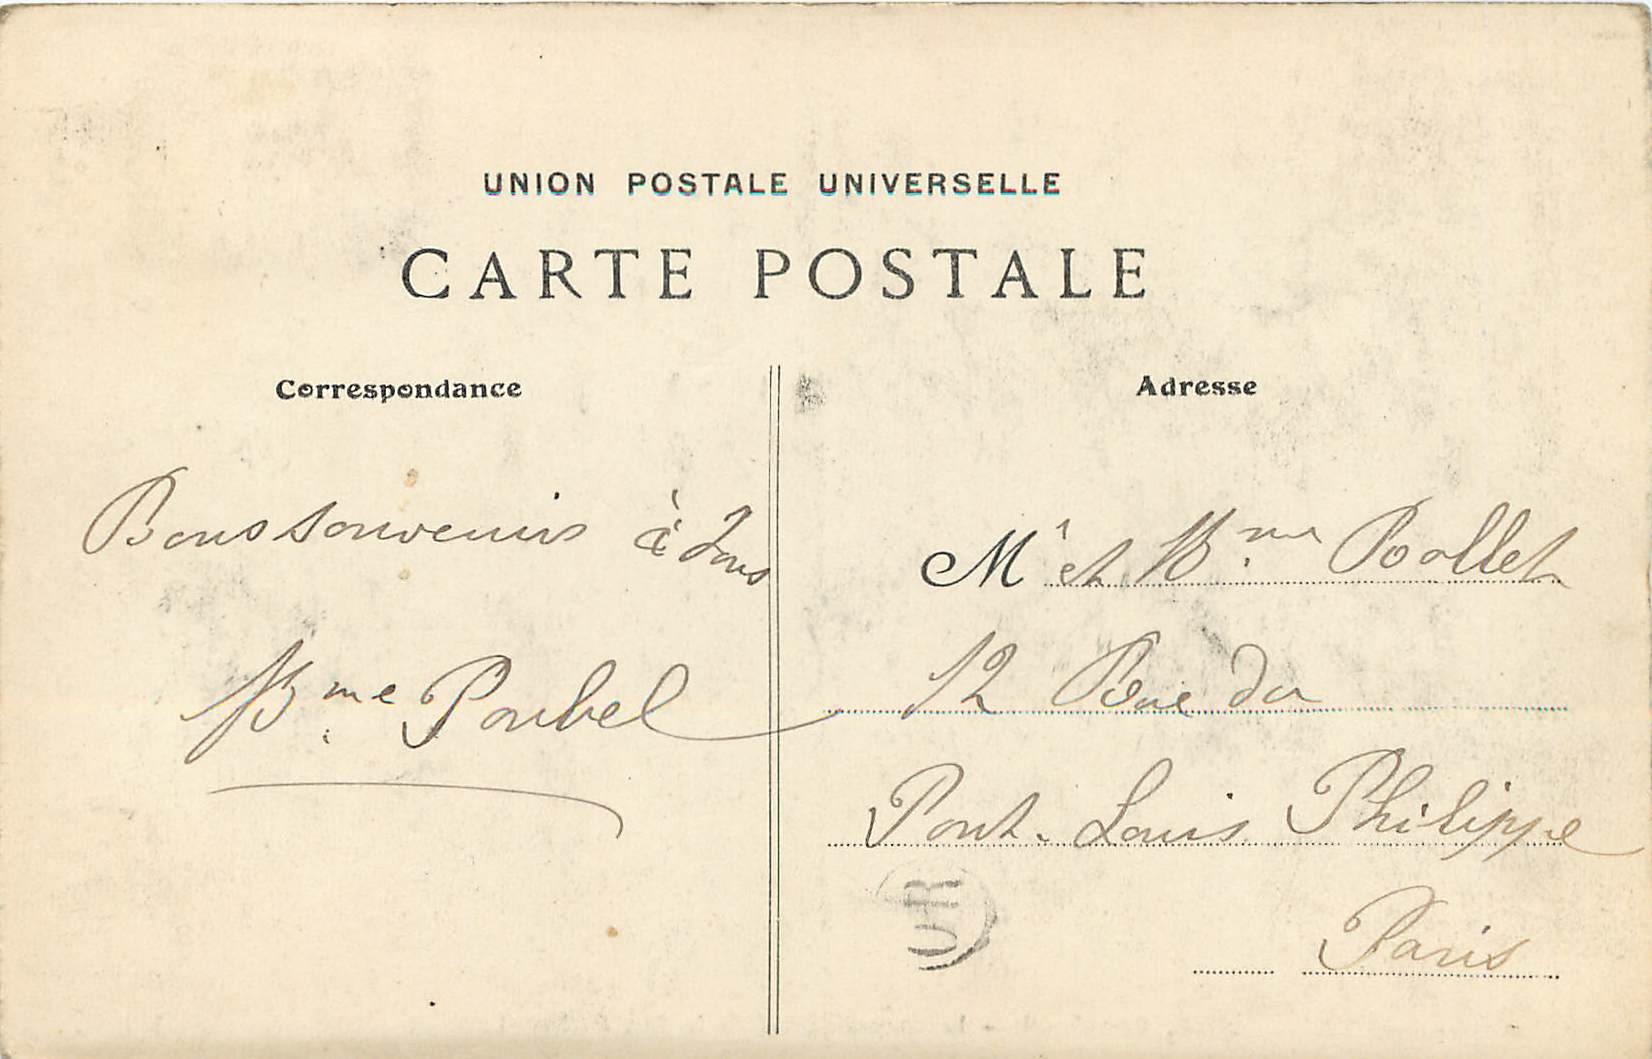 UNION POSTALE UNIVERSELLE
CARTE POSTALE
Correspondance
Bons souvenirs à tous
Mme Poubel
Adresse
Mr et Mme Rollet
12 Rue du
Pont-Louis Philippe
Paris
UR